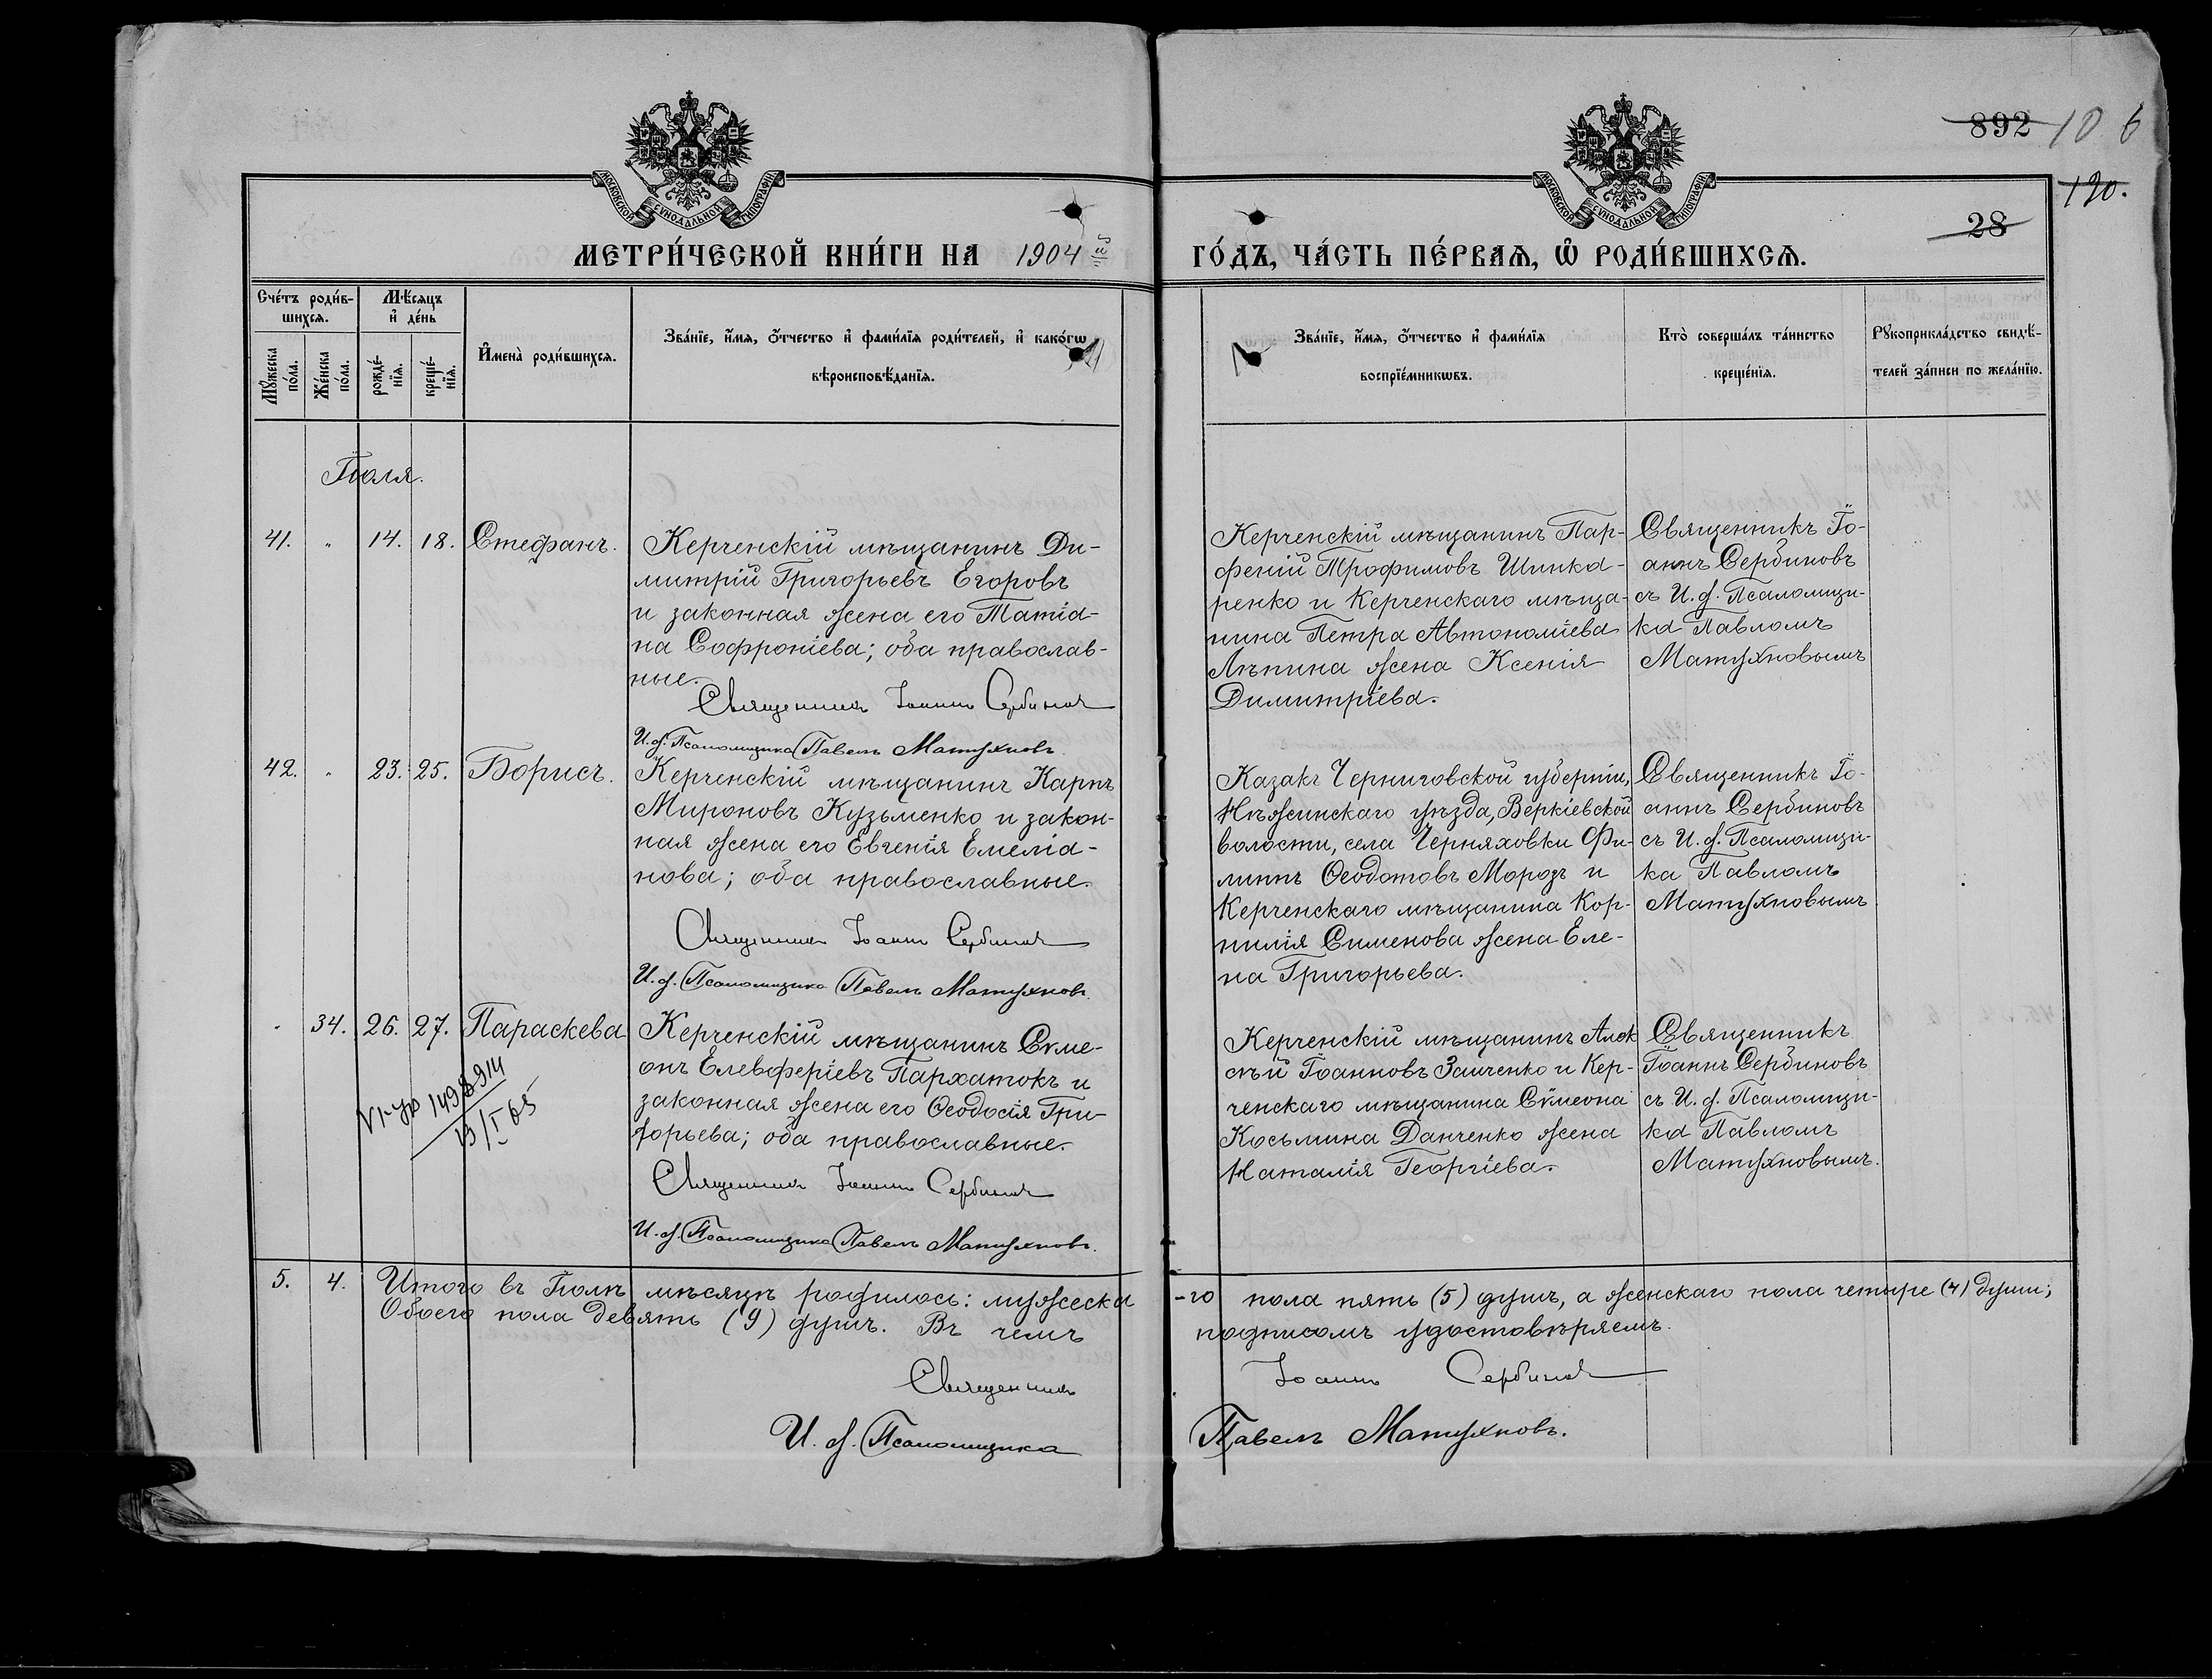 892 106
120.
28
МОСКОВСКОЙ СѴНОДАЛЬНОЙ ТИПОГРАФІИ
МОСКОВСКОЙ СѴНОДАЛЬНОЙ ТИПОГРАФІИ
МЕТРИ́ЧЕСКОЙ КНИ́ГИ НА 1904 й
ГО́ДЪ, ЧА́СТЬ ПЕ́РВАѦ, Ѡ҆ РОДИ́ВШИХСѦ.
Сче́тъ роди́в-
шихсѧ.
Мꙋ́жеска по́ла.
Же́нска по́ла.
Мѣ́сяцъ
и҆ де́нь
рожде́нїѧ.
креще́нїѧ.
И҆мена̀ роди́вшихсѧ.
Зва́нїе, и҆́мѧ, ѻ҆́тчество и҆ фами́лїѧ роди́телей, и҆ како́гѡ
вѣроисповѣ́данїѧ.
Зва́нїе, и҆́мѧ, ѻ҆́тчество и҆ фами́лїѧ
воспрїе́мникѡвъ.
Кто̀ соверша́лъ та́инство
креще́нїѧ.
Рꙋкоприкла́дство свидѣ́-
телей за́писи по жела́нїю.
Іюля.
41. " 14. 18. Стефанъ.
Керченскій мѣщанинъ Ди-
митрій Григорьевъ Егоровъ
и законная жена его Татіа-
на Софроніева; оба православ-
ные.
Священникъ Іоаннъ Сербиновъ
И. д. Псаломщика Павелъ Матухновъ.
Керченскій мѣщанинъ Пар-
феній Трофимовъ Шинка-
ренко и Керченскаго мѣща-
нина Петра Автономіева
Лѣпина жена Ксенія
Димитріева.
Священникъ Іо-
аннъ Сербиновъ
съ И. д. Псаломщи-
ка Павломъ
Матухновымъ
42. " 23. 25. Борисъ.
Керченскій мѣщанинъ Карпъ
Мироновъ Кузьменко и закон-
ная жена его Евгенія Емеліа-
нова; оба православные.
Священникъ Іоаннъ Сербиновъ
И. д. Псаломщика Павелъ Матухновъ.
Казакъ Черниговской губерніи,
Нѣжинскаго уѣзда, Веркіевской
волости, села Черняховки Фи-
липпъ Ѳеодотовъ Морозъ и
Керченскаго мѣщанина Кор-
нилія Сименова жена Еле-
на Григорьева.
Священникъ Іо-
аннъ Сербиновъ
съ И. д. Псаломщи-
ка Павломъ
Матухновымъ.
" 34. 26. 27. Параскева
13/I 05
Керченскій мѣщанинъ Сѵме-
онъ Елевферіевъ Пархатокъ и
законная жена его Ѳеодосія Гри-
горьева; оба православные.
Священникъ Іоаннъ Сербиновъ
И. д. Псаломщика Павелъ Матухновъ.
Керченскій мѣщанинъ Алек
сѣй Іоанновъ Заиченко и Кер-
ченскаго мѣщанина Сѵмеона
Косьмина Данченко жена
Наталія Георгіева.
Священникъ
Іоаннъ Сербиновъ
съ И. д. Псаломщи-
ка Павломъ
Матухновымъ.
5. 4. Итого въ Іюлѣ мѣсяцѣ родилось: мужеска
-го пола пять (5) душъ, а женскаго пола четыре (4) души;
Обоего пола девять (9) душъ. Въ чемъ
подписомъ удостовѣряемъ.
Священникъ Іоаннъ Сербиновъ
И. д. Псаломщика Павелъ Матухновъ.